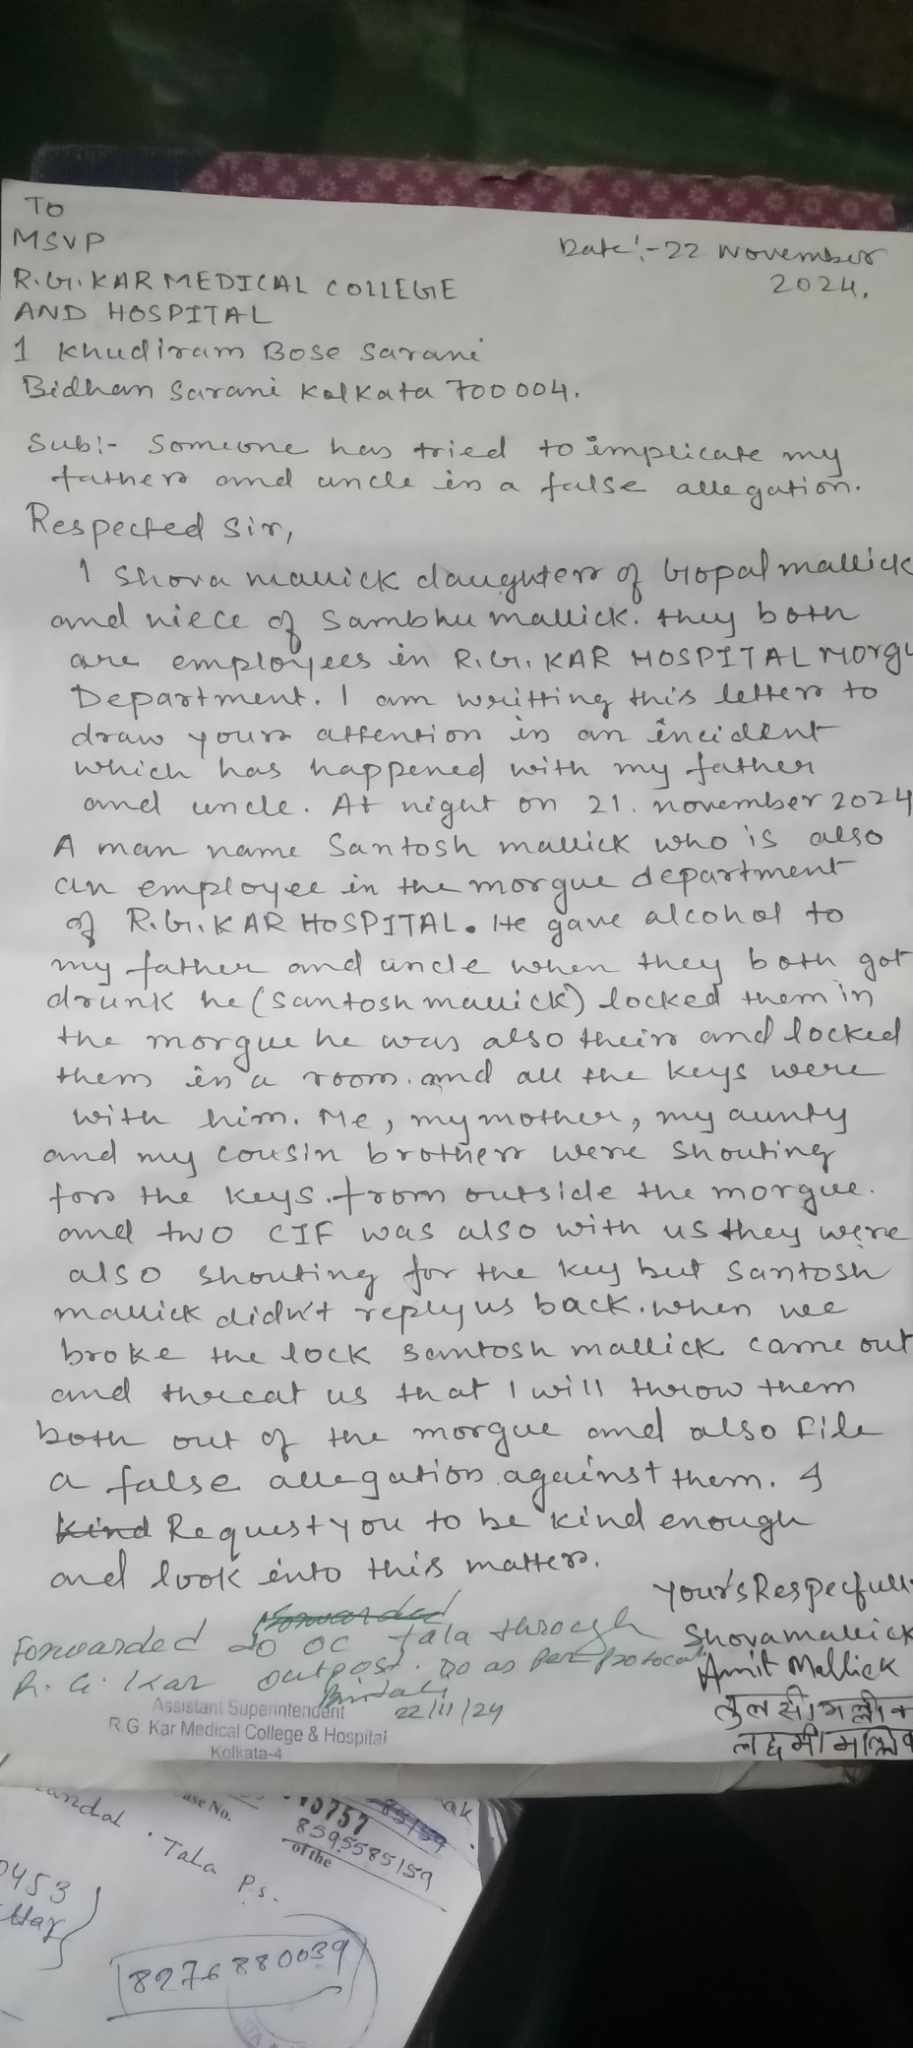 TO
MSVP
Date:- 22 November
2024.
R.G. KAR MEDICAL COLLEGE
AND HOSPITAL
1 Khudiram Bose Sarani
Bidhan Sarani Kolkata 700004.
Sub:- Someone has tried to implicate my
father and uncle in a false allegation.
Respected Sir,
I Shova mallick daughter of Gopal mallick
and niece of Sambhu mallick. they both
are employees in R.G. KAR HOSPITAL Morgu
Department. I am writting this letter to
draw your attention in an incident
which has happened with my father
and uncle. At night on 21. november 2024
A man name Santosh mallick who is also
an employee in the morgue department
of R.G. KAR HOSPITAL. He gave alcohol to
my father and uncle when they both got
drunk he (Santosh mallick) locked them in
the morgue he was also their and locked
them in a room. and all the keys were
with him. Me, my mother, my aunty
and my cousin brother were shouting
for the keys. from outside the morgue.
and two CIF was also with us they were
also shouting for the key but Santosh
mallick didn't reply us back. when we
broke the lock Santosh mallick came out
and threat us that I will throw them
both out of the morgue and also File
a false allegation against them. I
Kind Request you to be kind enough
and look into this matter.
Your's Respecfull
Shova mallick
Amit Mallick
तुलसी मल्लीक
लक्ष्मी मल्लिक
Forwarded
Forwarded to OC Tala through
R. G. Kar outpost. Do as per protocal
22/11/24
Assistant Superintendent
R.G. Kar Medical College & Hospital
Kolkata-4
Tala P.S.
ase No.
8595585159
of the
0453
8276880039